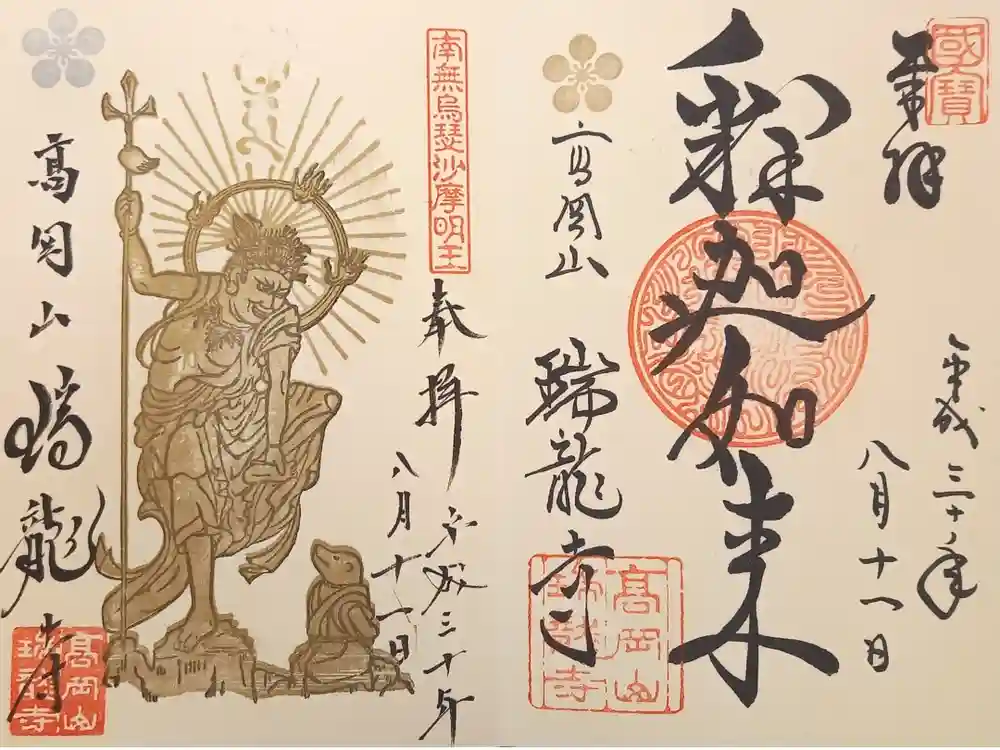 國寶
奉拝
平成三十年
八月十一日
釈迦如来
高岡山
瑞龍寺
高岡山
瑞龍寺
南無烏瑟沙摩明王
奉拝
平成三十年
八月十一日
高岡山
瑞龍寺
高岡山
瑞龍寺